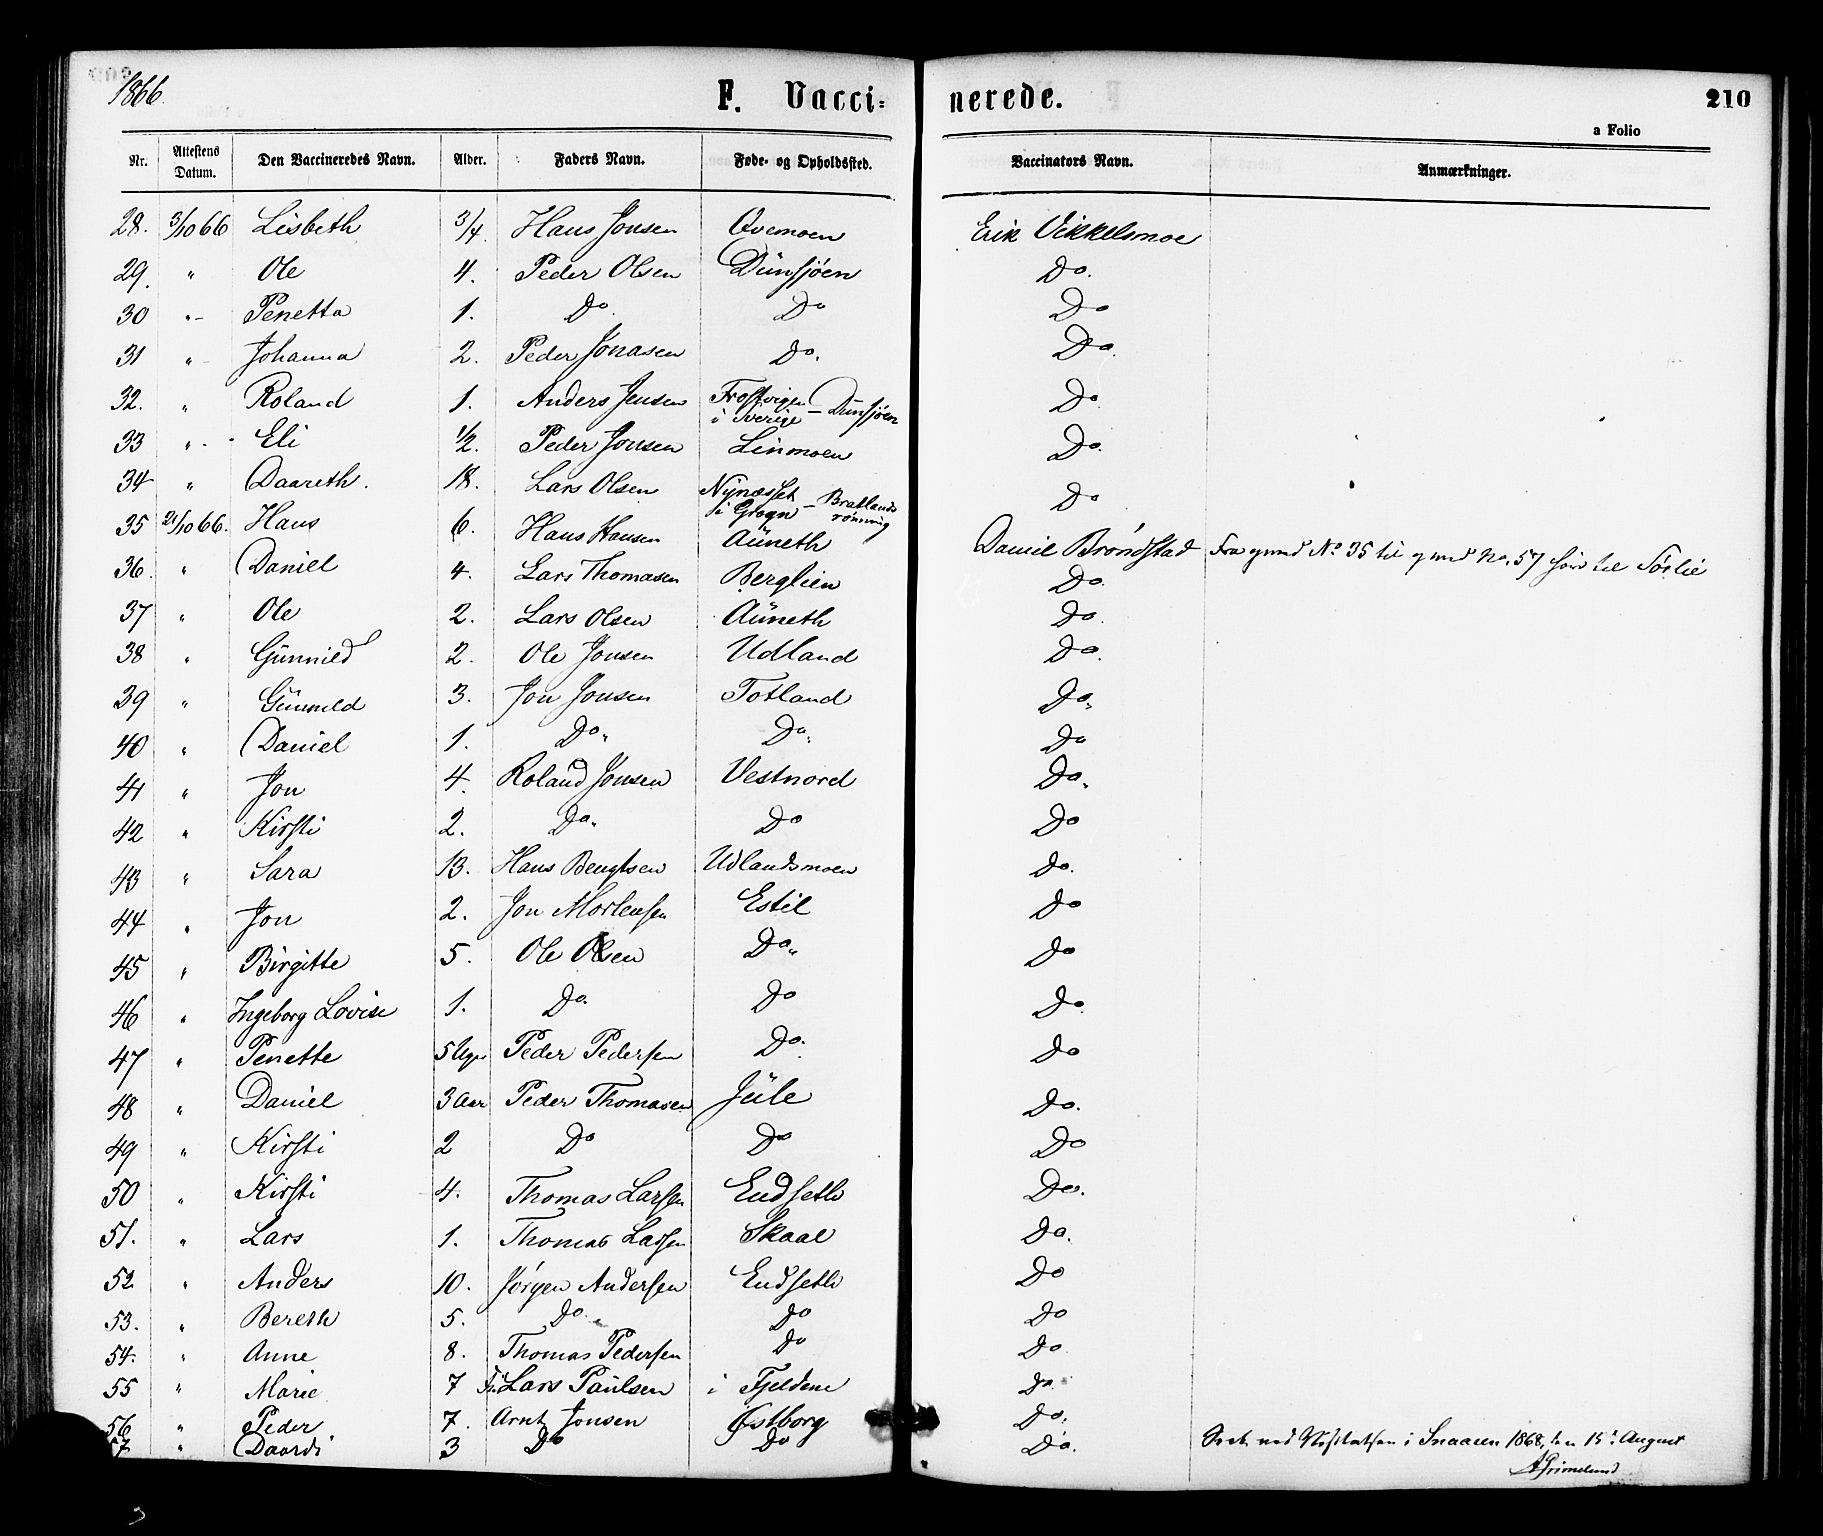 1866.
F. Vacci= nerede. 210
a Folio
Nr. Attestens Datum. Den Vaccineredes Navn. Alder. Faders Navn. Føde- og Opholdssted. Vaccinators Navn. Anmærkninger.
28. 3/10 66 Lisbeth 3/4. Hans Jonsen Qvemoen Erik Vekkelsmoe
29. " Ole 4. Peder Olsen Dünsjöen Do.
30 " Penetta 1. Do. Do Do
31 " Johanna 2. Peder Jonasen Do. Do.
32. " Roland 1. Anders Jensen Frostvigen i Sverige – Dünsjøen Do.
33 " Eli 1/2. Peder Jonsen Linmoen Do.
34 " Daareth. 18. Lars Olsen Nynæsset i Grogn – Bratlands Do
35 21/10 66. Hans 6. Hans Hansen Aüneth Daniel Bröndstad Fra og med No. 35 til og med No. 57 til Sørlie
36. " Daniel 4. Lars Thomasen Berglien Do.
37 " Ole 2. Lars Olsen Aüneth Do.
38 " Günnild 2. Ole Jonsen Udland Do.
39 " Günnild 3. Jon Jonsen Totland Do.
40 " Daniel 1. Do. Do. Do
41 " Jon 4. Roland Jonsen Vestnord Do.
42 " Kirsti 2. Do. Do Do
43 " Sara 13. Hans Bengtsen Udlandsmoen Do.
44 " Jon 2. Jon Mortensen Estil Do
45 " Birgitte 5. Ole Olsen Do. Do
46 " Ingeborg Lovise 1. Do. Do Do.
47 " Penette 5 Uger Peder Pedersen Do. Do
48 " Daniel 3 Aar Peder Thomasen Jüle Do.
49 " Kirsti 2 Do Do Do
50 " Kirsti 4. Thomas Larsen Eudseth Do.
51. " Lars 1. Thomas Larsen Skaal Do.
52 " Anders 10. Jörgen Andersen Eudseth Do
53. " Bereth 5. Do. Do Do
54. " Anne 8. Thomas Pedersen Do Do
55 " Marie 7 Lars Paülsen i Fjeldene Do.
56 " Peder 7. Arnt Jonsen Østborg Do.
57 " Daardi 3 Do Do Do.
Seet ved Visitatsen i Snaasen 1868, den 15. August
AGrimelund